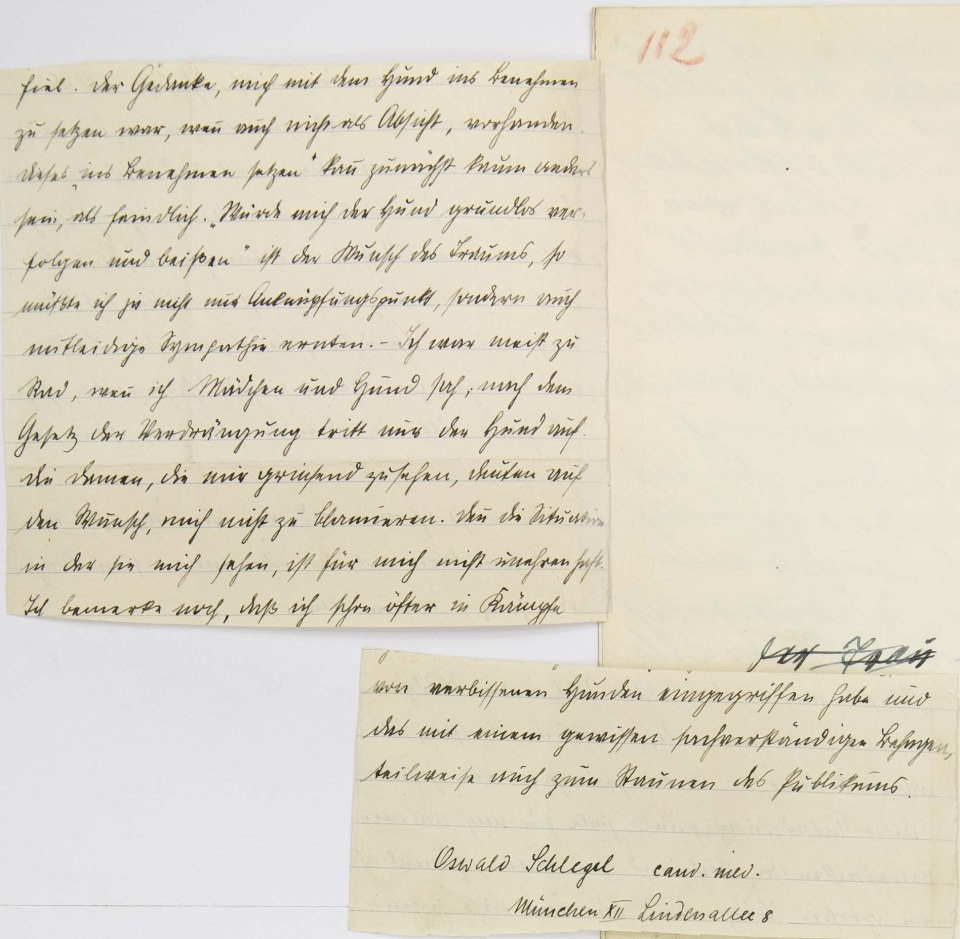 112
fiel. Der Gedanke, mich mit dem Hund ins Benehmen
zu setzen war, weñ auch nicht als Absicht, vorhanden.
Dieses „ins Benehmen setzen“ kañ zunächst kaum anders
sein, als feindlich. „Würde mich der Hund grundlos ver-
folgen und beißen“ ist der Wunsch des Traums, so
müßte ich ja nicht nur Anknüpfungspunkt, sondern auch
mitleidige Sympathie ernten. – Ich war meist zu
Rad, weñ ich Mädchen und Hund sah; nach dem
Gesetz der Verdrängung tritt nur der Hund auf.
Die Damen, die mir grinsend zusehen, deuten auf
den Wunsch, mich nicht zu blamieren. Deñ die Situation
in der sie mich sehen, ist für mich nicht unehrenhaft.
Ich bemerke noch, daß ich schon öfter in Kämpfe
der Frau
von verbissenen Hunden eingegriffen habe und
das mit einem gewissen sachverständigen Behagen,
teilweise auch zum Staunen des Publikums.
Oswald Schlegel cand. med.
München XII Lindenallee 8